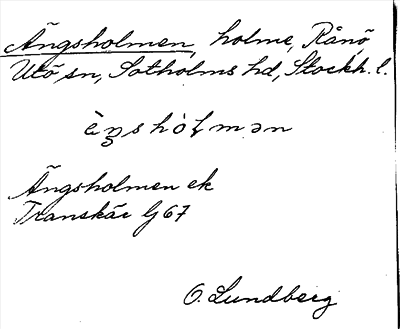 Ängsholmen, holme, Rånö
Utö sn, Sotholms hd, Stockh. l.
ä̀ŋshòlmən
Ängsholmen ek
Transkär G 67
O. Lundberg